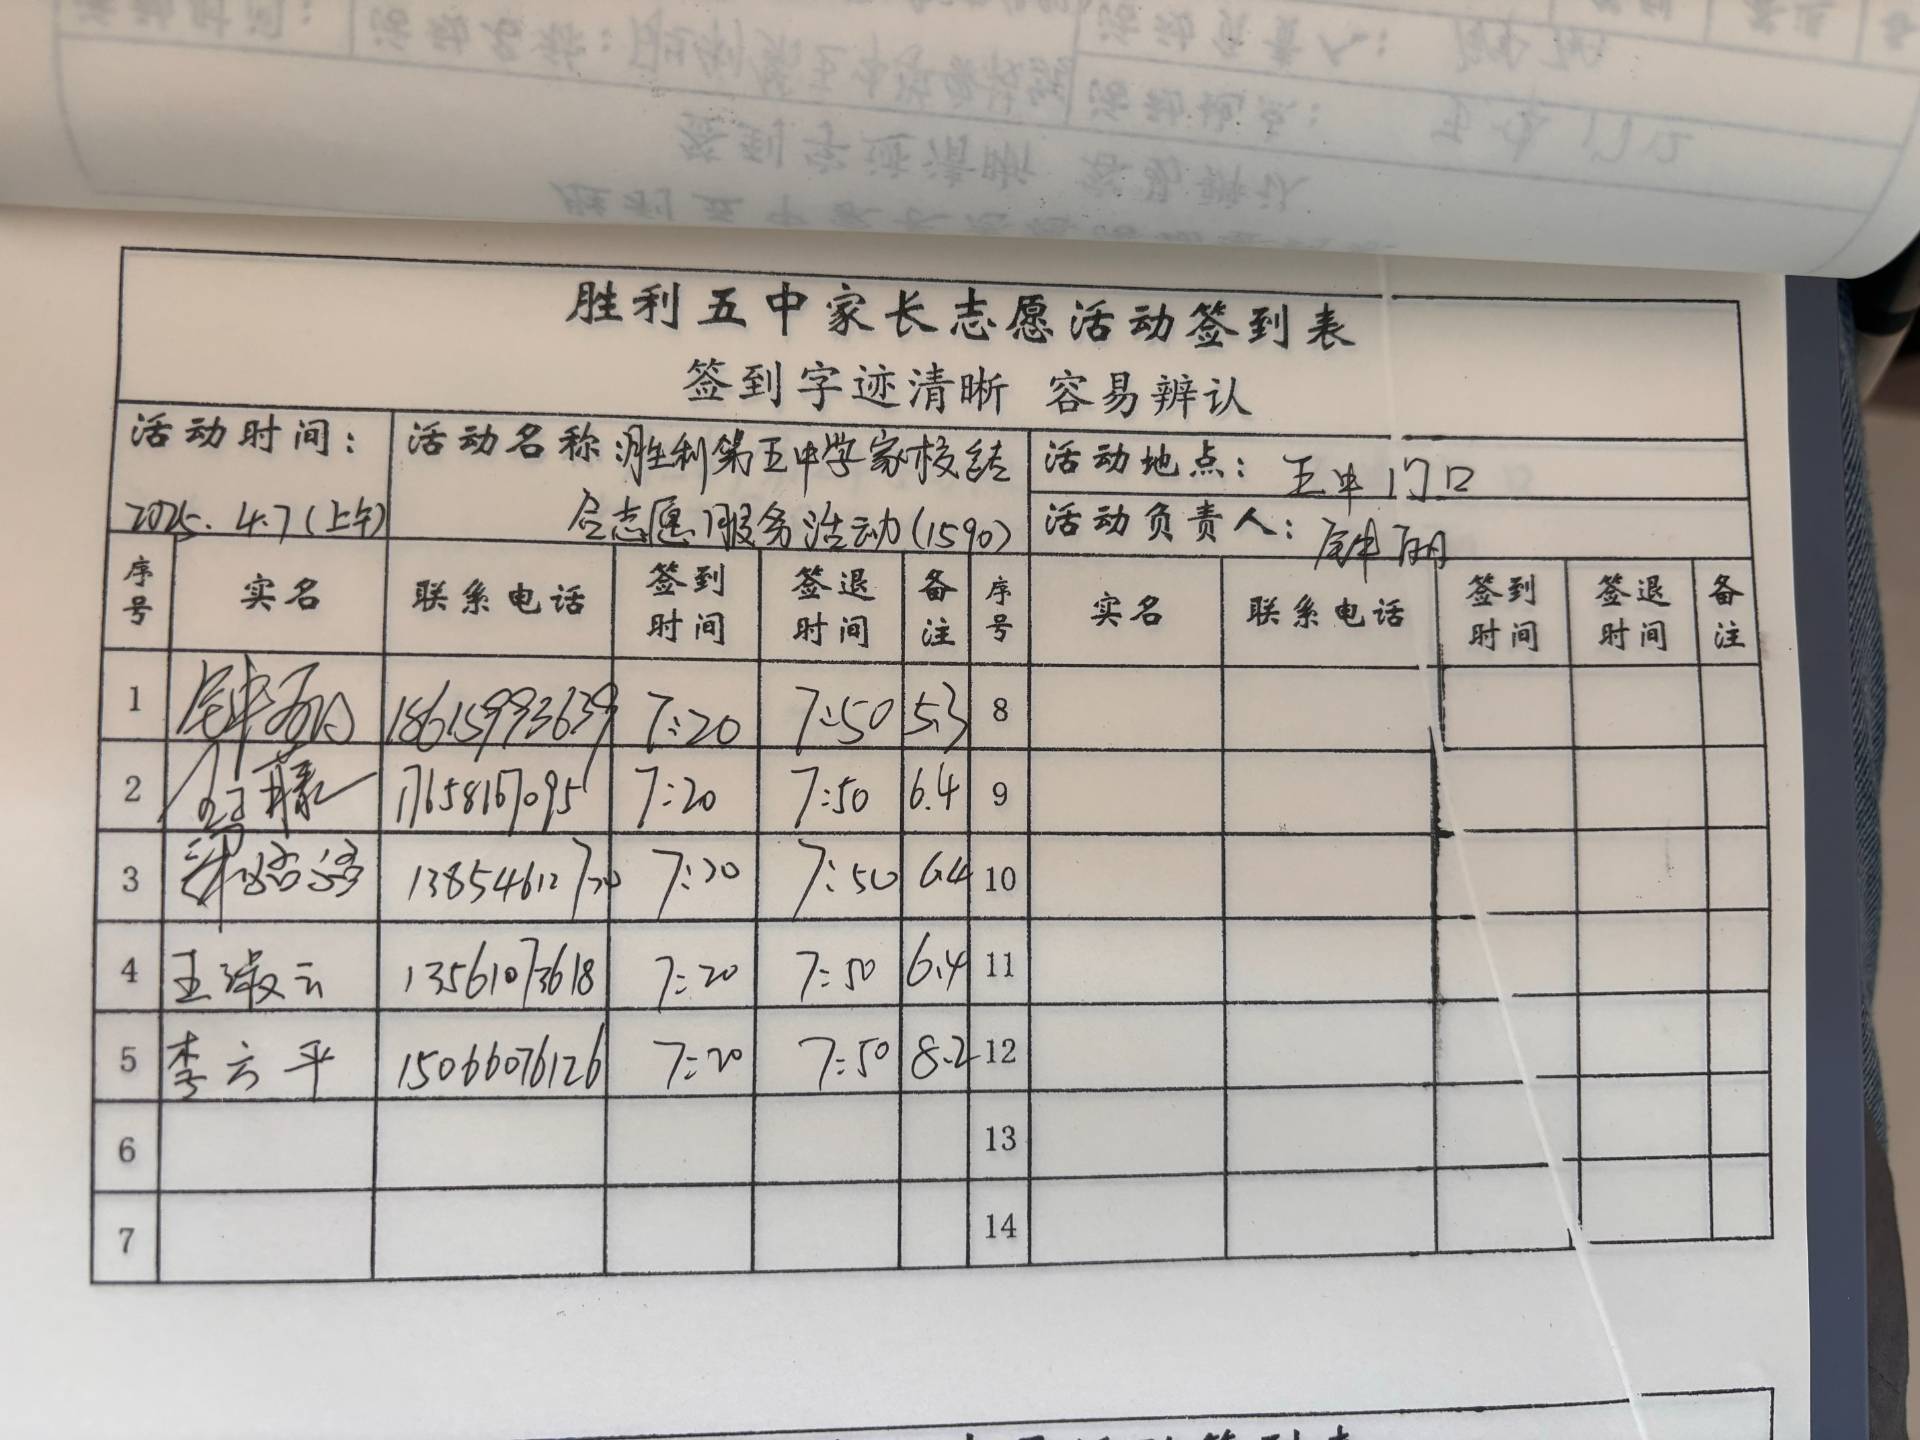 胜利五中家长志愿活动签到表
签到字迹清晰 容易辨认
活动时间：
2025.4.7(上午)
活动名称 胜利第五中学家校结
合志愿服务活动(1590)
活动地点：五中门口
活动负责人：
序号 实名 联系电话 签到时间 签退时间 备注 序号 实名 联系电话 签到时间 签退时间 备注
1 18615993639 7:20 7:50 5.3 8
2 17658167095 7:20 7:50 6.4 9
3 13854612720 7:20 7:50 6.4 10
4 王淑云 13561073618 7:20 7:50 6.4 11
5 李云平 15066076126 7:20 7:50 8.2 12
6 13
7 14